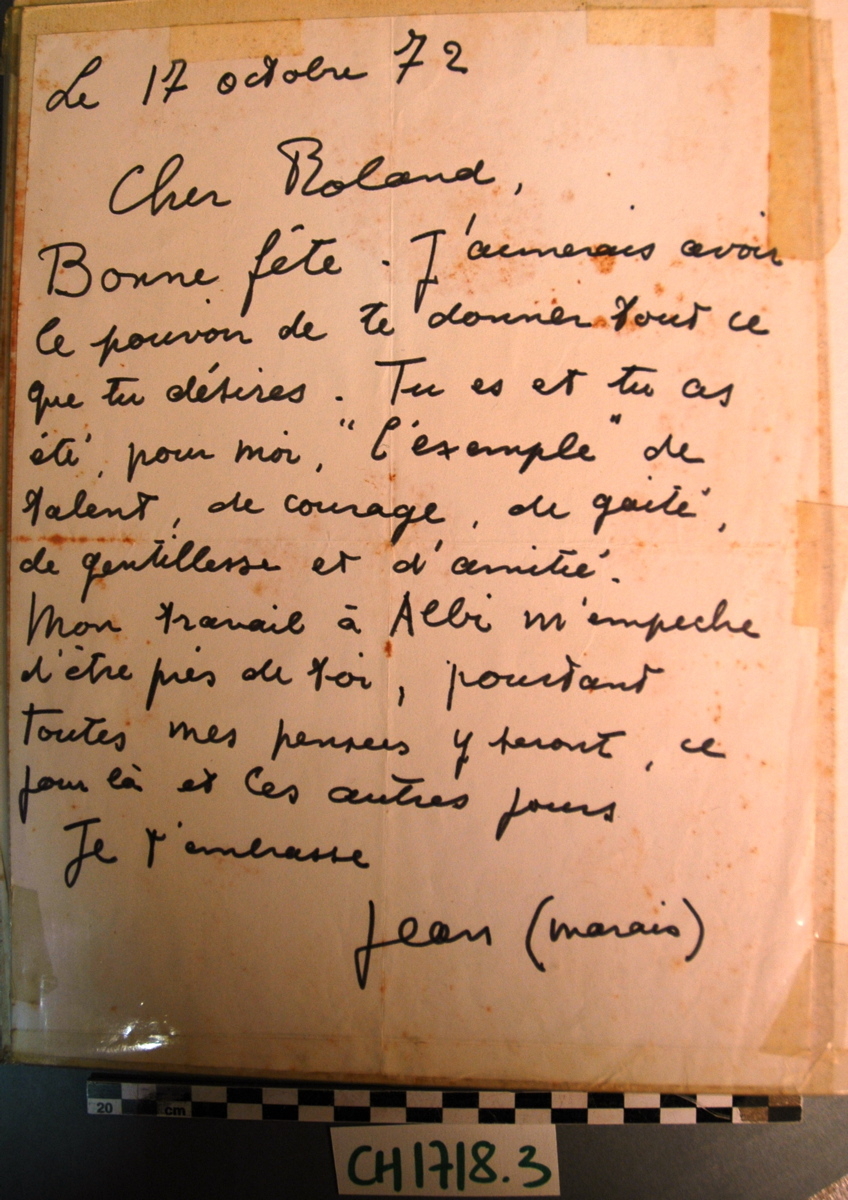 Le 17 octobre 72
Cher Roland,
Bonne fête. J'aimerais avoir
le pouvoir de te donner tout ce
que tu désires. Tu es et tu as
été, pour moi, "l'exemple" de
talent, de courage, de gaité,
de gentillesse et d'amitié.
Mon travail à Albi m'empeche
d'être près de toi, pourtant
toutes mes pensées y seront, ce
jour là et les autres jours
Je t'embrasse
Jean (marais)
20 cm
CH1718.3